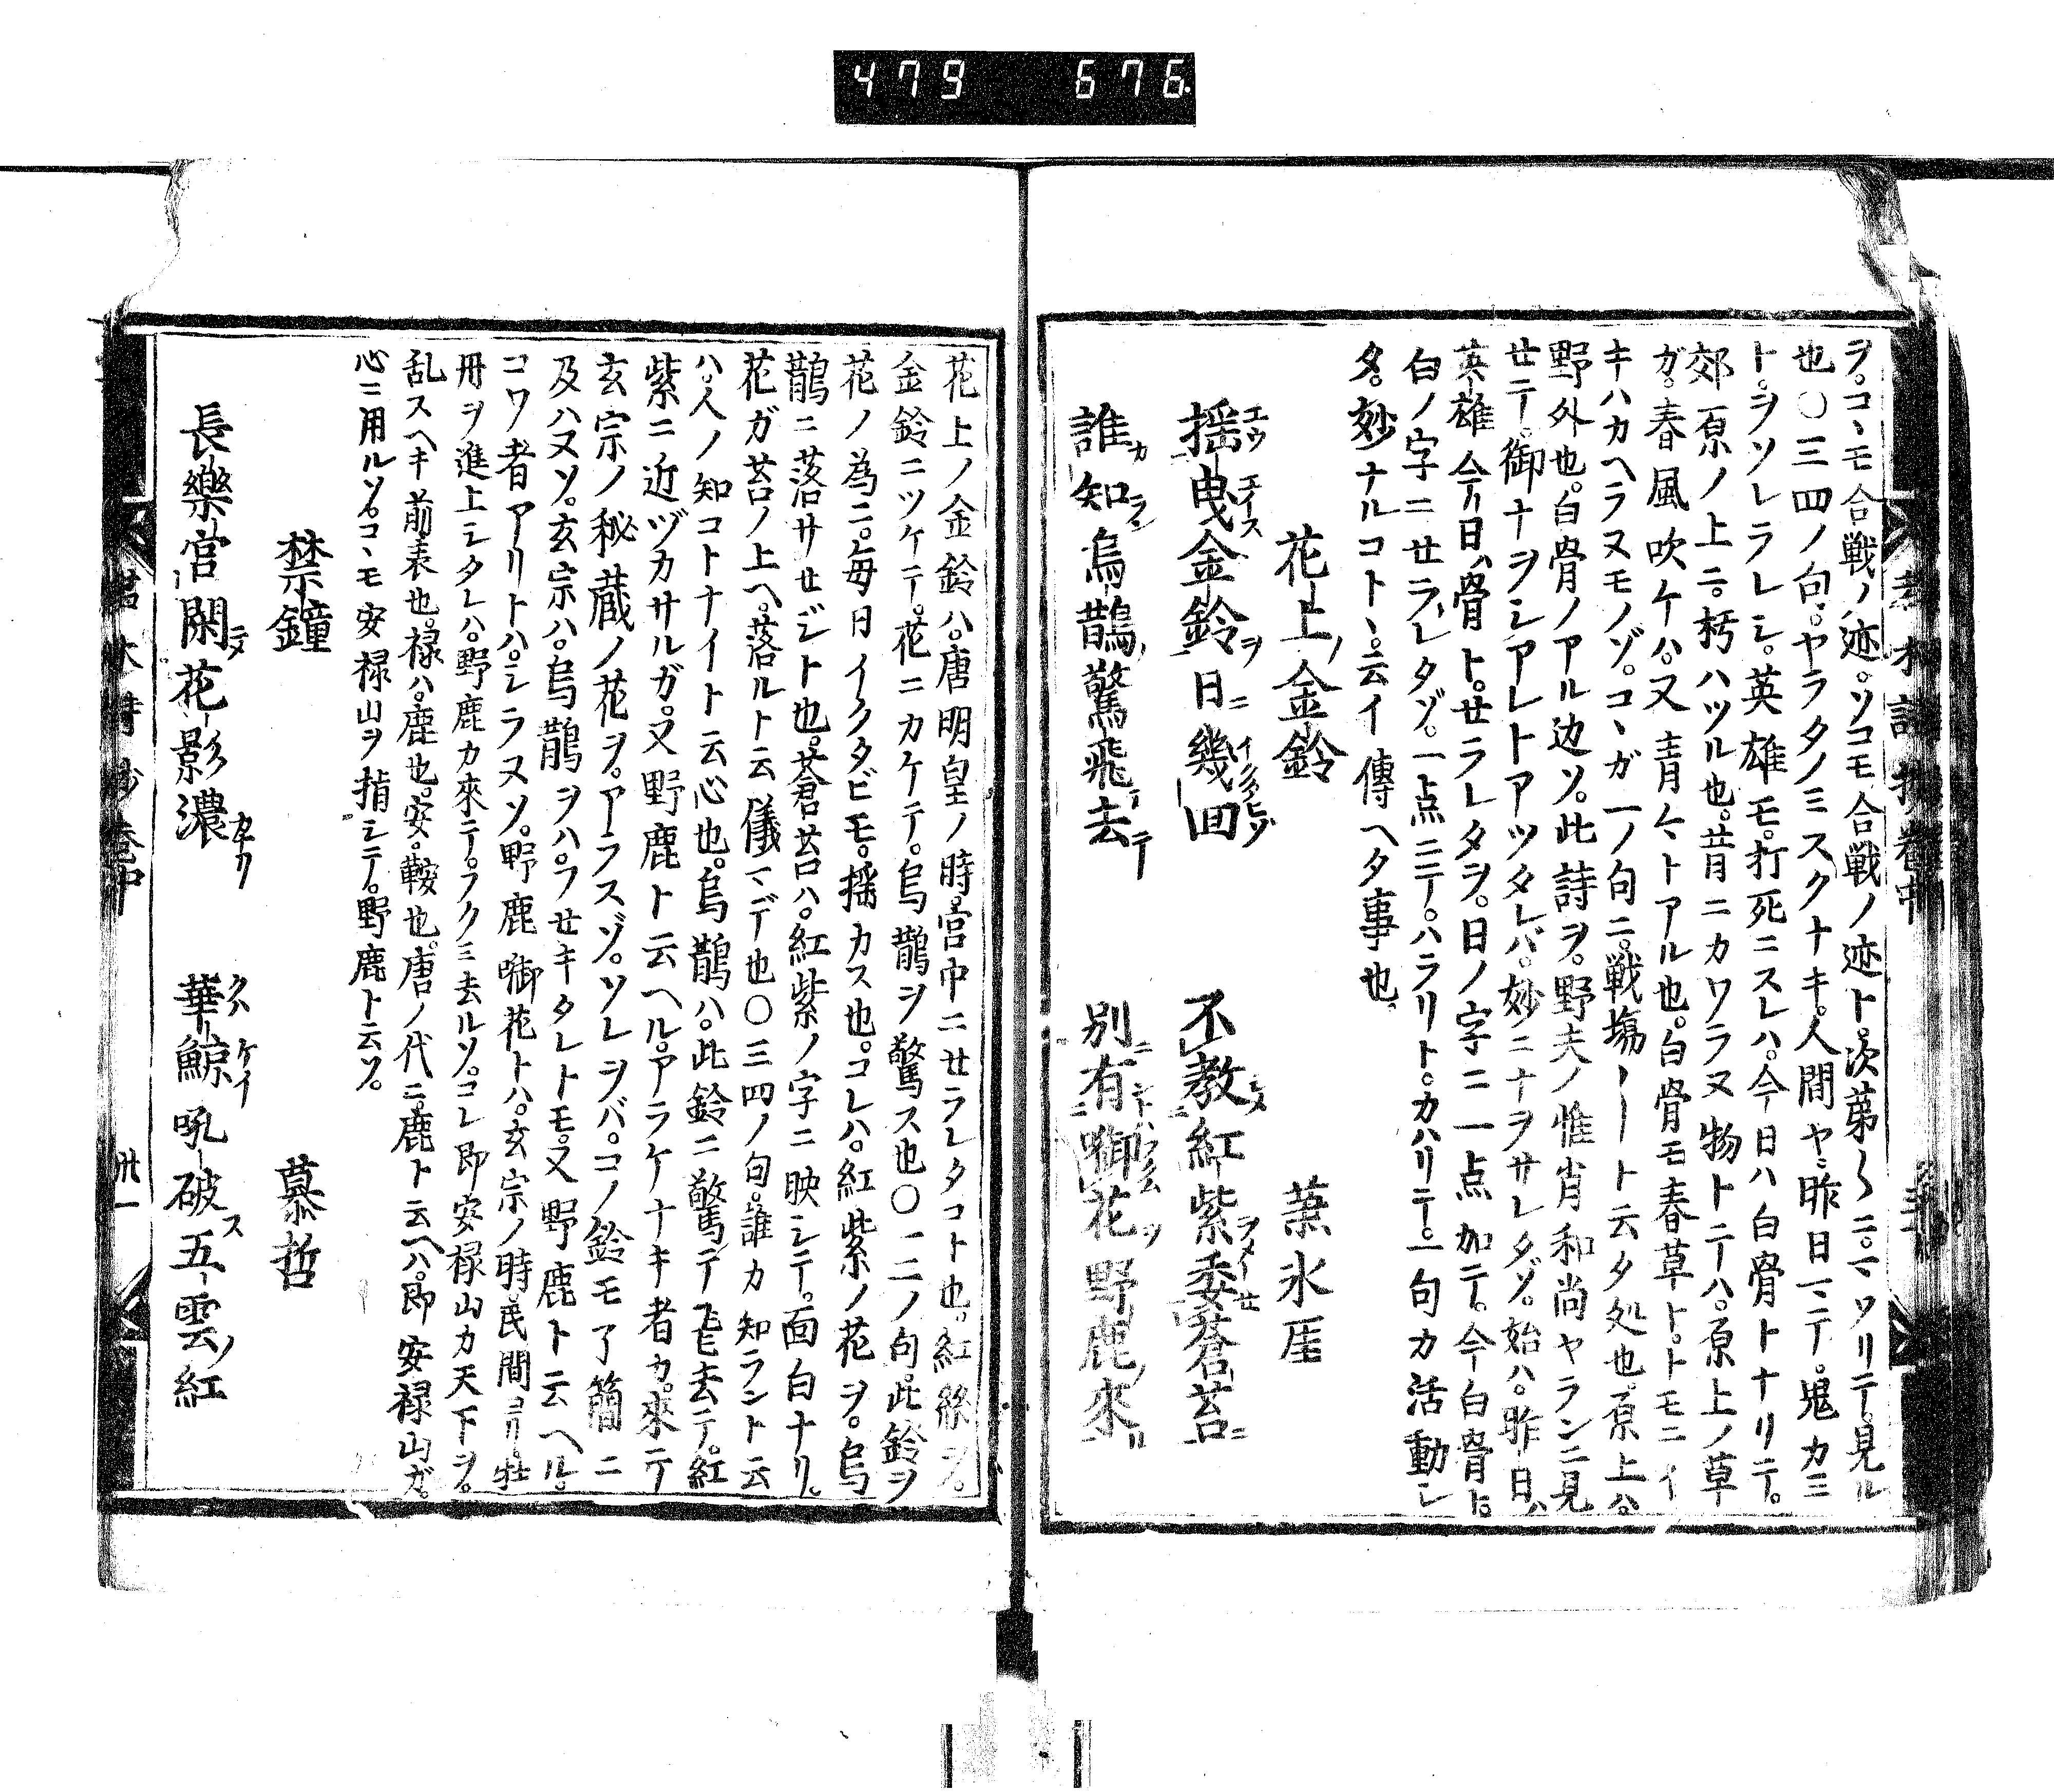 479 676
ヲ。コヽモ合戦ノ迹。ソコモ合戦ノ迹ト。次第〱ニ。マソリテ。見ル
也〇三四ノ句。ヤラタノミスクナキ。人間ヤ。昨日マテ。鬼カミ
ト。ヲソレラレシ。英雄モ。打死ニスレハ。今日ハ白骨トナリテ。
郊原ノ上ニ。朽ハツル也。昔ニカワラヌ物トテハ。原上ノ草
ガ。春風吹ケハ。又青々トアル也。白骨モ春草ト。トモニイ
キハカヘラヌモノゾ。コヽガ一ノ句ニ。戦塲ーート云タ処也。原上ハ。
野外也。白骨ノアル辺ソ。此詩ヲ。野夫ノ惟肖和尚ヤランニ見
セテ。御ナヲシアレトアツタレバ。妙ニナヲサレタゾ。始ハ。昨日ハ
英雄今日ハ骨ト。セラレタヲ。日ノ字ニ一点加テ。今白骨ト。
白ノ字ニセラレタゾ。一点ニテ。ハラリト。カハリテ。一句カ活動シ
タ。妙ナルコトヽ。云イ傳ヘタ事也。
花上ノ金鈴 葉氷厓
揺曳金鈴ヲ日ニ幾回 不教紅紫委蒼苔ニ
誰カ知ラン烏鵲驚飛去テ 別ニ有啣花野鹿來
花上ノ金鈴ハ。唐明皇ノ時。宮中ニセラレタコト也。紅絲ヲ。
金鈴ニツケテ。花ニカケテ。烏鵲ヲ驚ス也〇一二ノ句。此鈴ヲ
花ノ為ニ。毎日イクタビモ。揺カス也。コレハ。紅紫ノ花ヲ。烏
鵲ニ落サセジト也。蒼苔ハ。紅紫ノ字ニ映シテ。面白ナリ。
花ガ苔ノ上ヘ。落ルト云儀マデ也〇三四ノ句。誰カ知ラント云
ハ。人ノ知コトナイト云心也。烏鵲ハ。此鈴ニ驚テ飛去テ。紅
紫ニ近ヅカサルガ。又野鹿ト云ヘル。アラケナキ者カ。來テ
玄宗ノ秘蔵ノ花ヲ。アラスゾ。ソレヲバ。コノ鈴モ了簡ニ
及ハヌソ。玄宗ハ。烏鵲ヲハ。フセキタレトモ。又野鹿ト云ヘル。
コワ者アリトハ。シラヌソ。野鹿啣花トハ。玄宗ノ時。民間ヨリ。牡
丹ヲ進上シタレハ。野鹿カ來テ。フクミ去ルソ。コレ即安禄山カ天下ヲ。
乱スヘキ前表也。禄ハ。鹿也。安ハ鞍也。唐ノ代ニ。鹿ト云ヘハ。即安禄山ガ。
心ニ用ルソ。コヽモ安禄山ヲ指シテ。野鹿ト云ソ。
禁鐘 慕哲
長樂宮閑テ花影濃カナリ 華鯨吼破ス五雲ノ紅